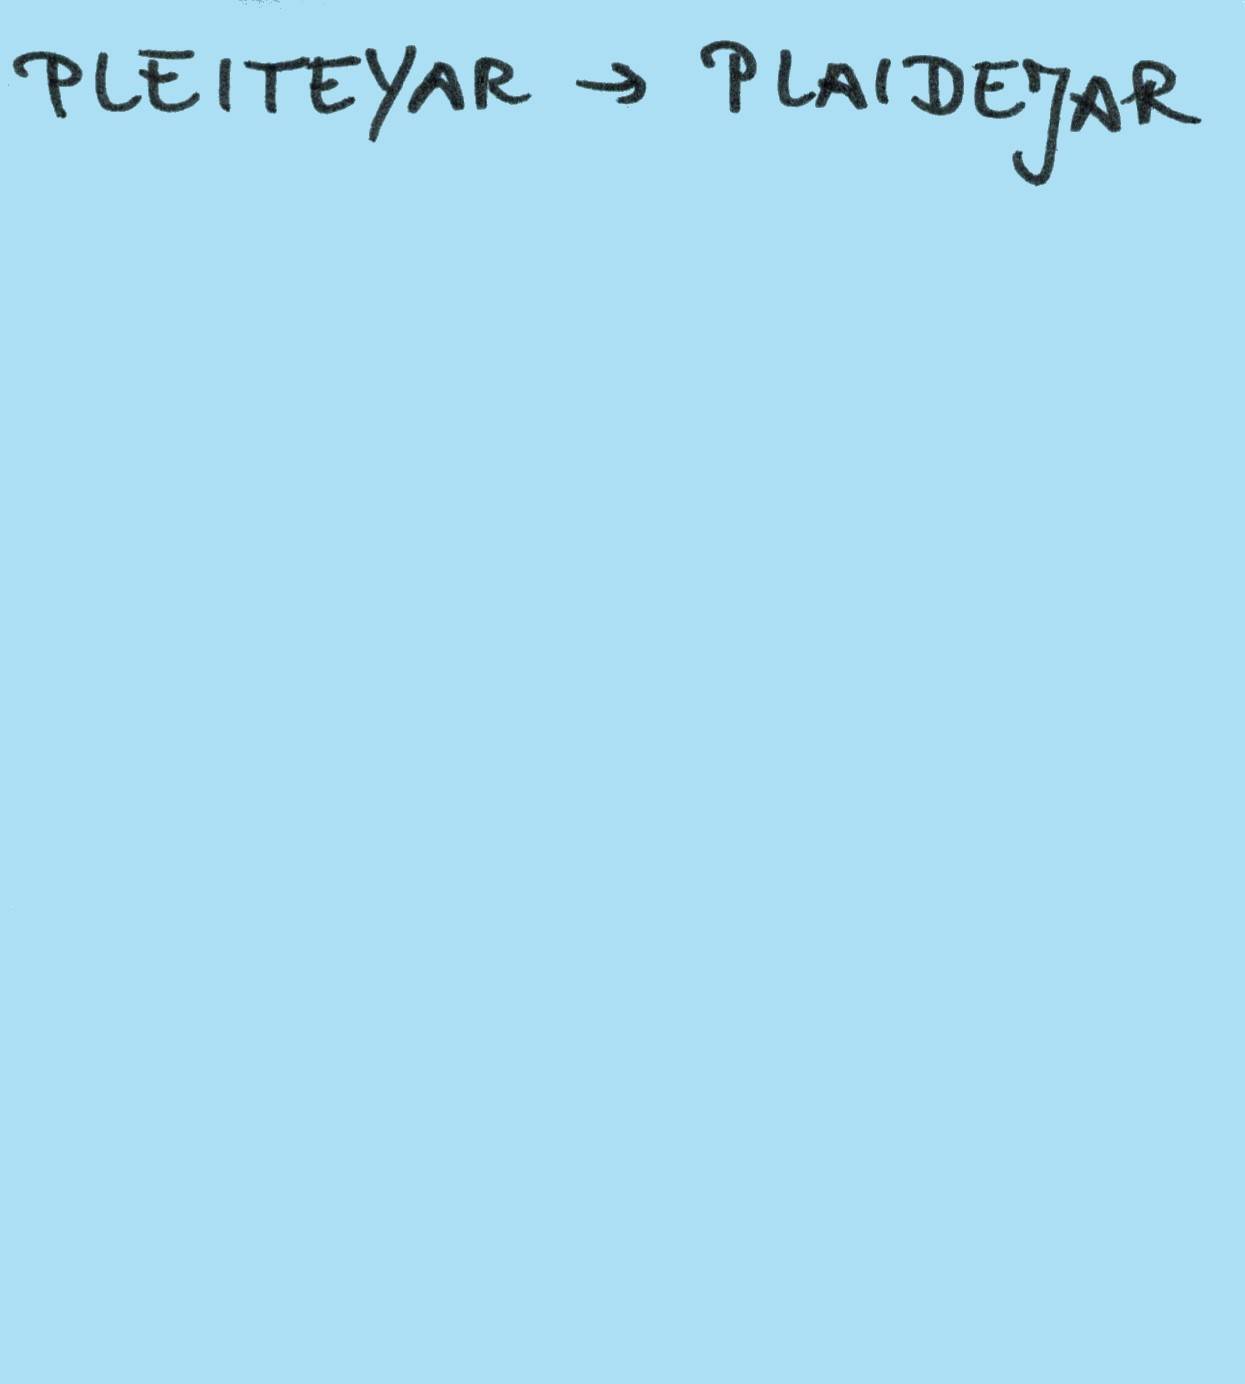 PLEITEYAR → PLAIDEJAR